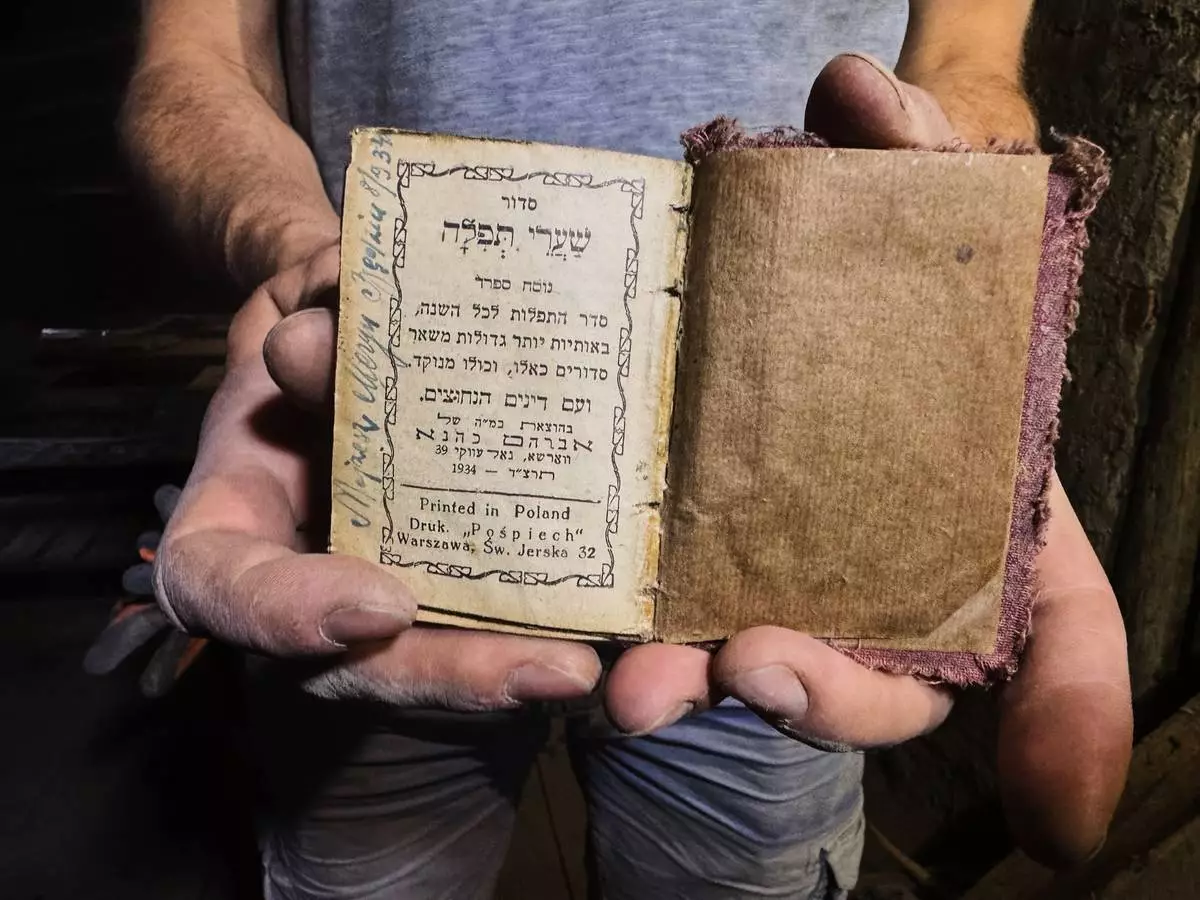 סדור
שַׁעֲרֵי תְּפִלָּה
נוסח ספרד
סדר התפלות לכל השנה,
באותיות יותר גדולות משאר
סדורים כאלו, וכולו מנוקד.
ועם דינים הנחוצים.
בהוצאת במ״ה של
אברהם כהנא
ווארשא, נאלעווקי 39
תרצ״ד — 1934
Printed in Poland
Druk. „Pośpiech"
Warszawa, Św. Jerska 32